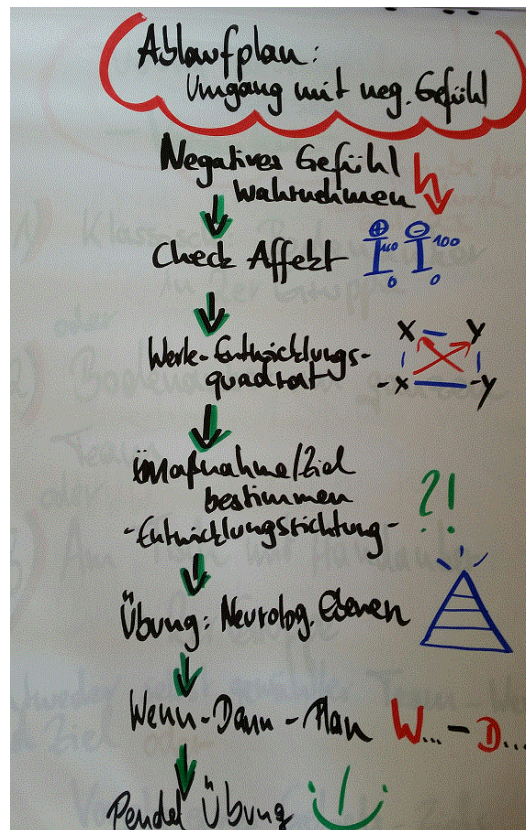 Ablaufplan:
Umgang mit neg. Gefühl
Negatives Gefühl
wahrnehmen
Check Affekt
+ -
100 100
0 0
Werte-Entwicklungs-
quadrat
X - Y
-X -Y
Maßnahme/Ziel
bestimmen
-Entwicklungsrichtung-
?!
Übung: Neurolog. Ebenen
Wenn-Dann-Plan
W... - D...
Pendel Übung
Klassisch
in der Gruppe
oder
Team
oder